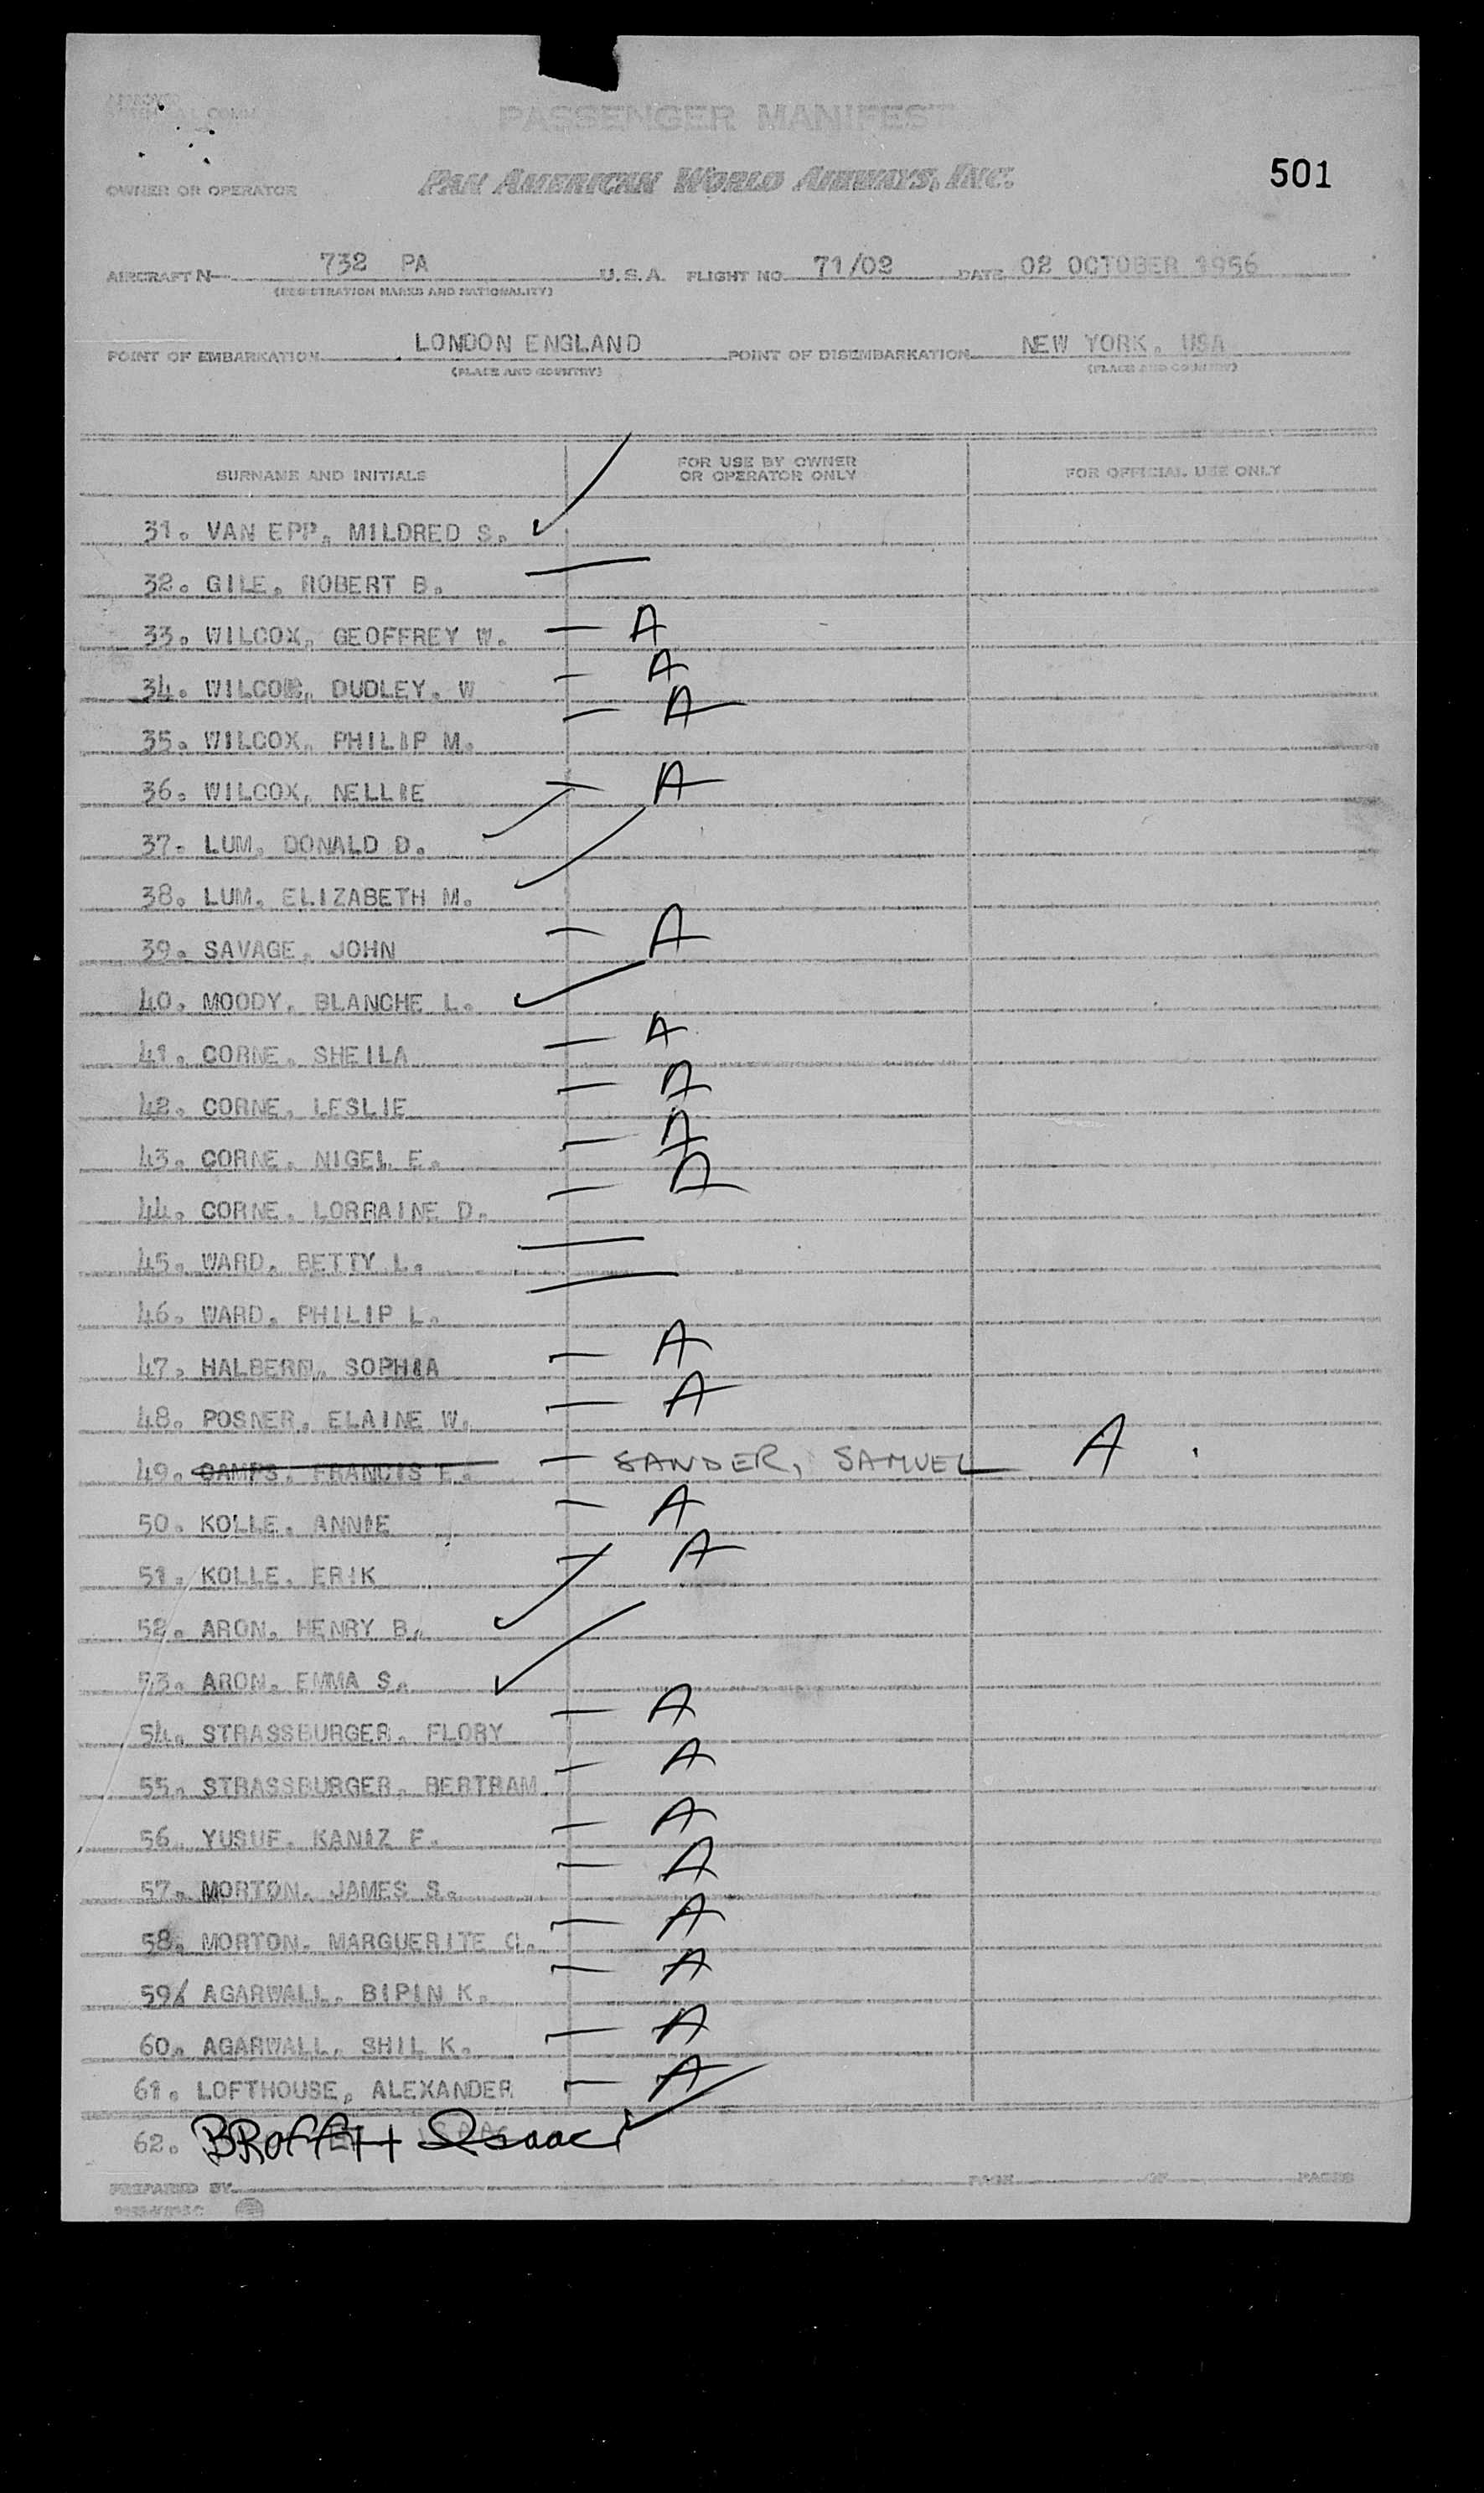 APPROVED
COMM
PASSENGER MANIFEST
501
OWNER OR OPERATOR PAN AMERICAN WORLD AIRWAYS, INC.
AIRCRAFT N 732 PA U.S.A. FLIGHT NO. 71/02 DATE 02 OCTOBER 1956
(REGISTRATION MARKS AND NATIONALITY)
POINT OF EMBARKATION LONDON ENGLAND POINT OF DISEMBARKATION NEW YORK, USA
(PLACE AND COUNTRY) (PLACE AND COUNTRY)
SURNAME AND INITIALS FOR USE BY OWNER OR OPERATOR ONLY FOR OFFICIAL USE ONLY
31. VAN EPP, MILDRED S. ✓
32. GILE, ROBERT B. —
33. WILCOX, GEOFFREY W. — A
34. WILCOX, DUDLEY, W — A
35. WILCOX, PHILIP M. — A
36. WILCOX, NELLIE — A
37. LUM, DONALD D. ✓
38. LUM, ELIZABETH M. ✓
39. SAVAGE, JOHN — A
40. MOODY, BLANCHE L. ✓
41. CORNE, SHEILA — A
42. CORNE, LESLIE — A
43. CORNE, NIGEL E. — A
44. CORNE, LORRAINE D. — A
45. WARD, BETTY L. —
46. WARD, PHILIP L. —
47. HALBERN, SOPHIA — A
48. POSNER, ELAINE W. — A
49. CAMPS, FRANCIS E. — SANDER, SAMUEL A
50. KOLLE, ANNIE — A
51. KOLLE, ERIK — A
52. ARON, HENRY B. ✓
53. ARON, EMMA S. ✓
54. STRASSBURGER, FLORY — A
55. STRASSBURGER, BERTRAM. — A
56. YUSUF, KANIZ E. — A
57. MORTON, JAMES S. — A
58. MORTON, MARGUERITE C. — A
59/ AGARWALL, BIPIN K. — A
60. AGARWALL, SHIL K. — A
61. LOFTHOUSE, ALEXANDER — A
62. Isaac ✓
PREPARED BY PAGE OF PAGES